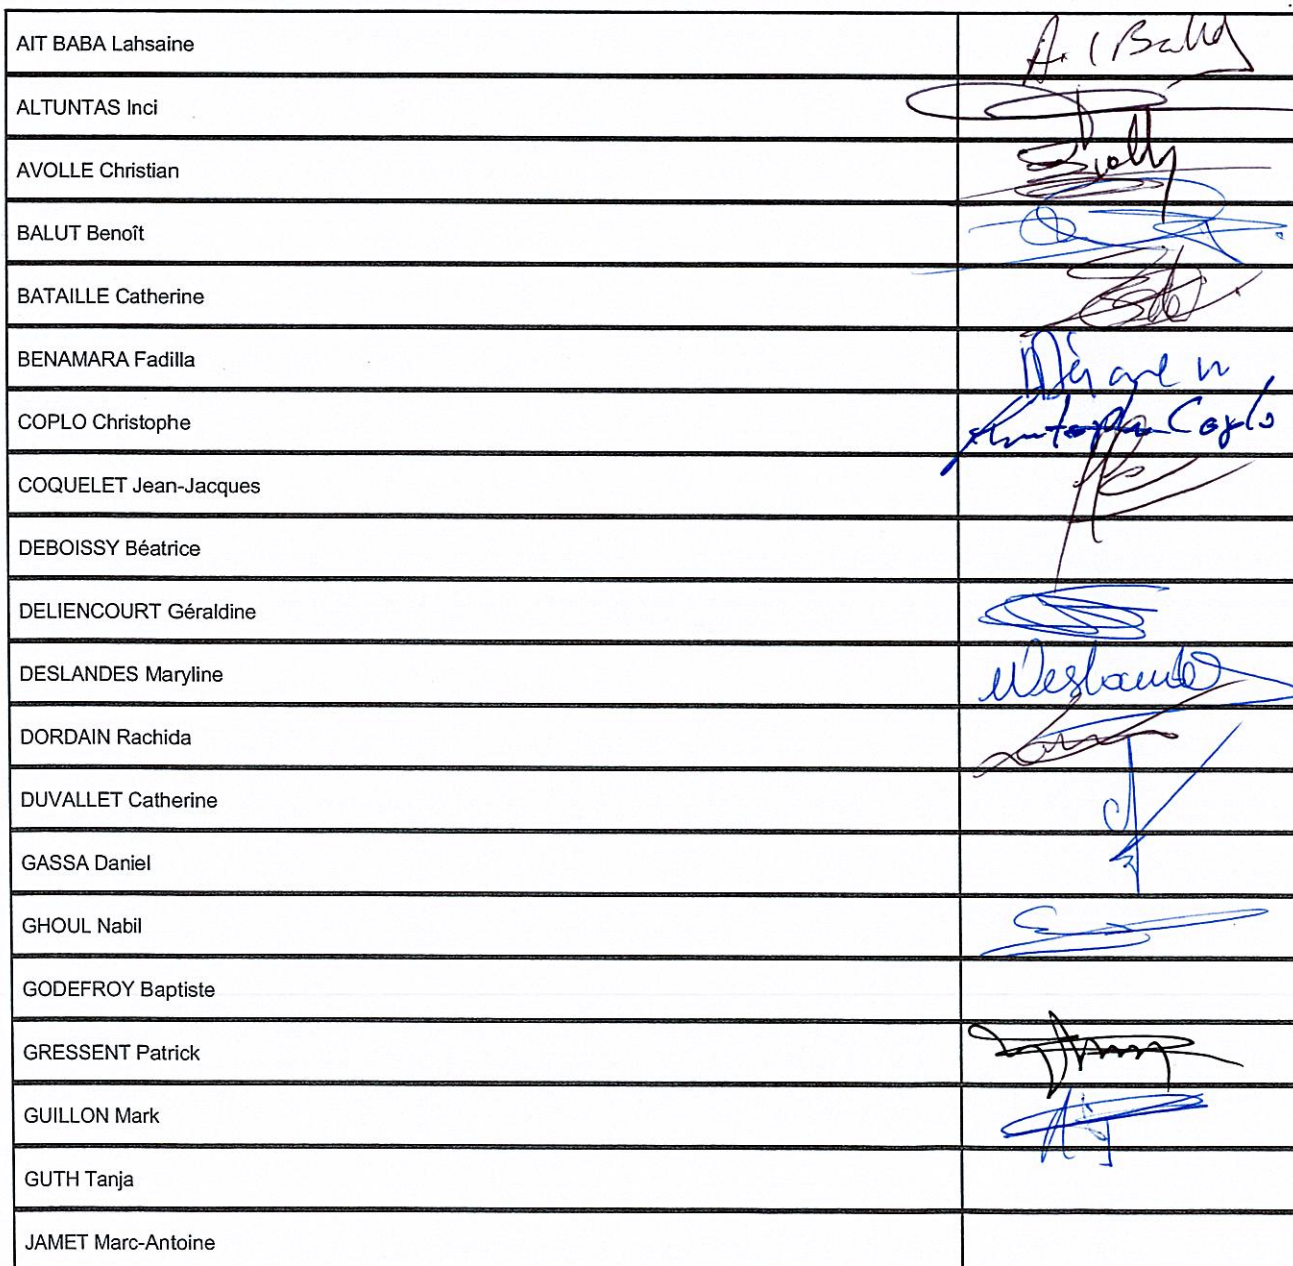 AIT BABA Lahsaine
ALTUNTAS Inci
AVOLLE Christian
BALUT Benoît
BATAILLE Catherine
BENAMARA Fadilla
COPLO Christophe Christophe Coplo
COQUELET Jean-Jacques
DEBOISSY Béatrice
DELIENCOURT Géraldine
DESLANDES Maryline
DORDAIN Rachida
DUVALLET Catherine
GASSA Daniel
GHOUL Nabil
GODEFROY Baptiste
GRESSENT Patrick
GUILLON Mark
GUTH Tanja
JAMET Marc-Antoine